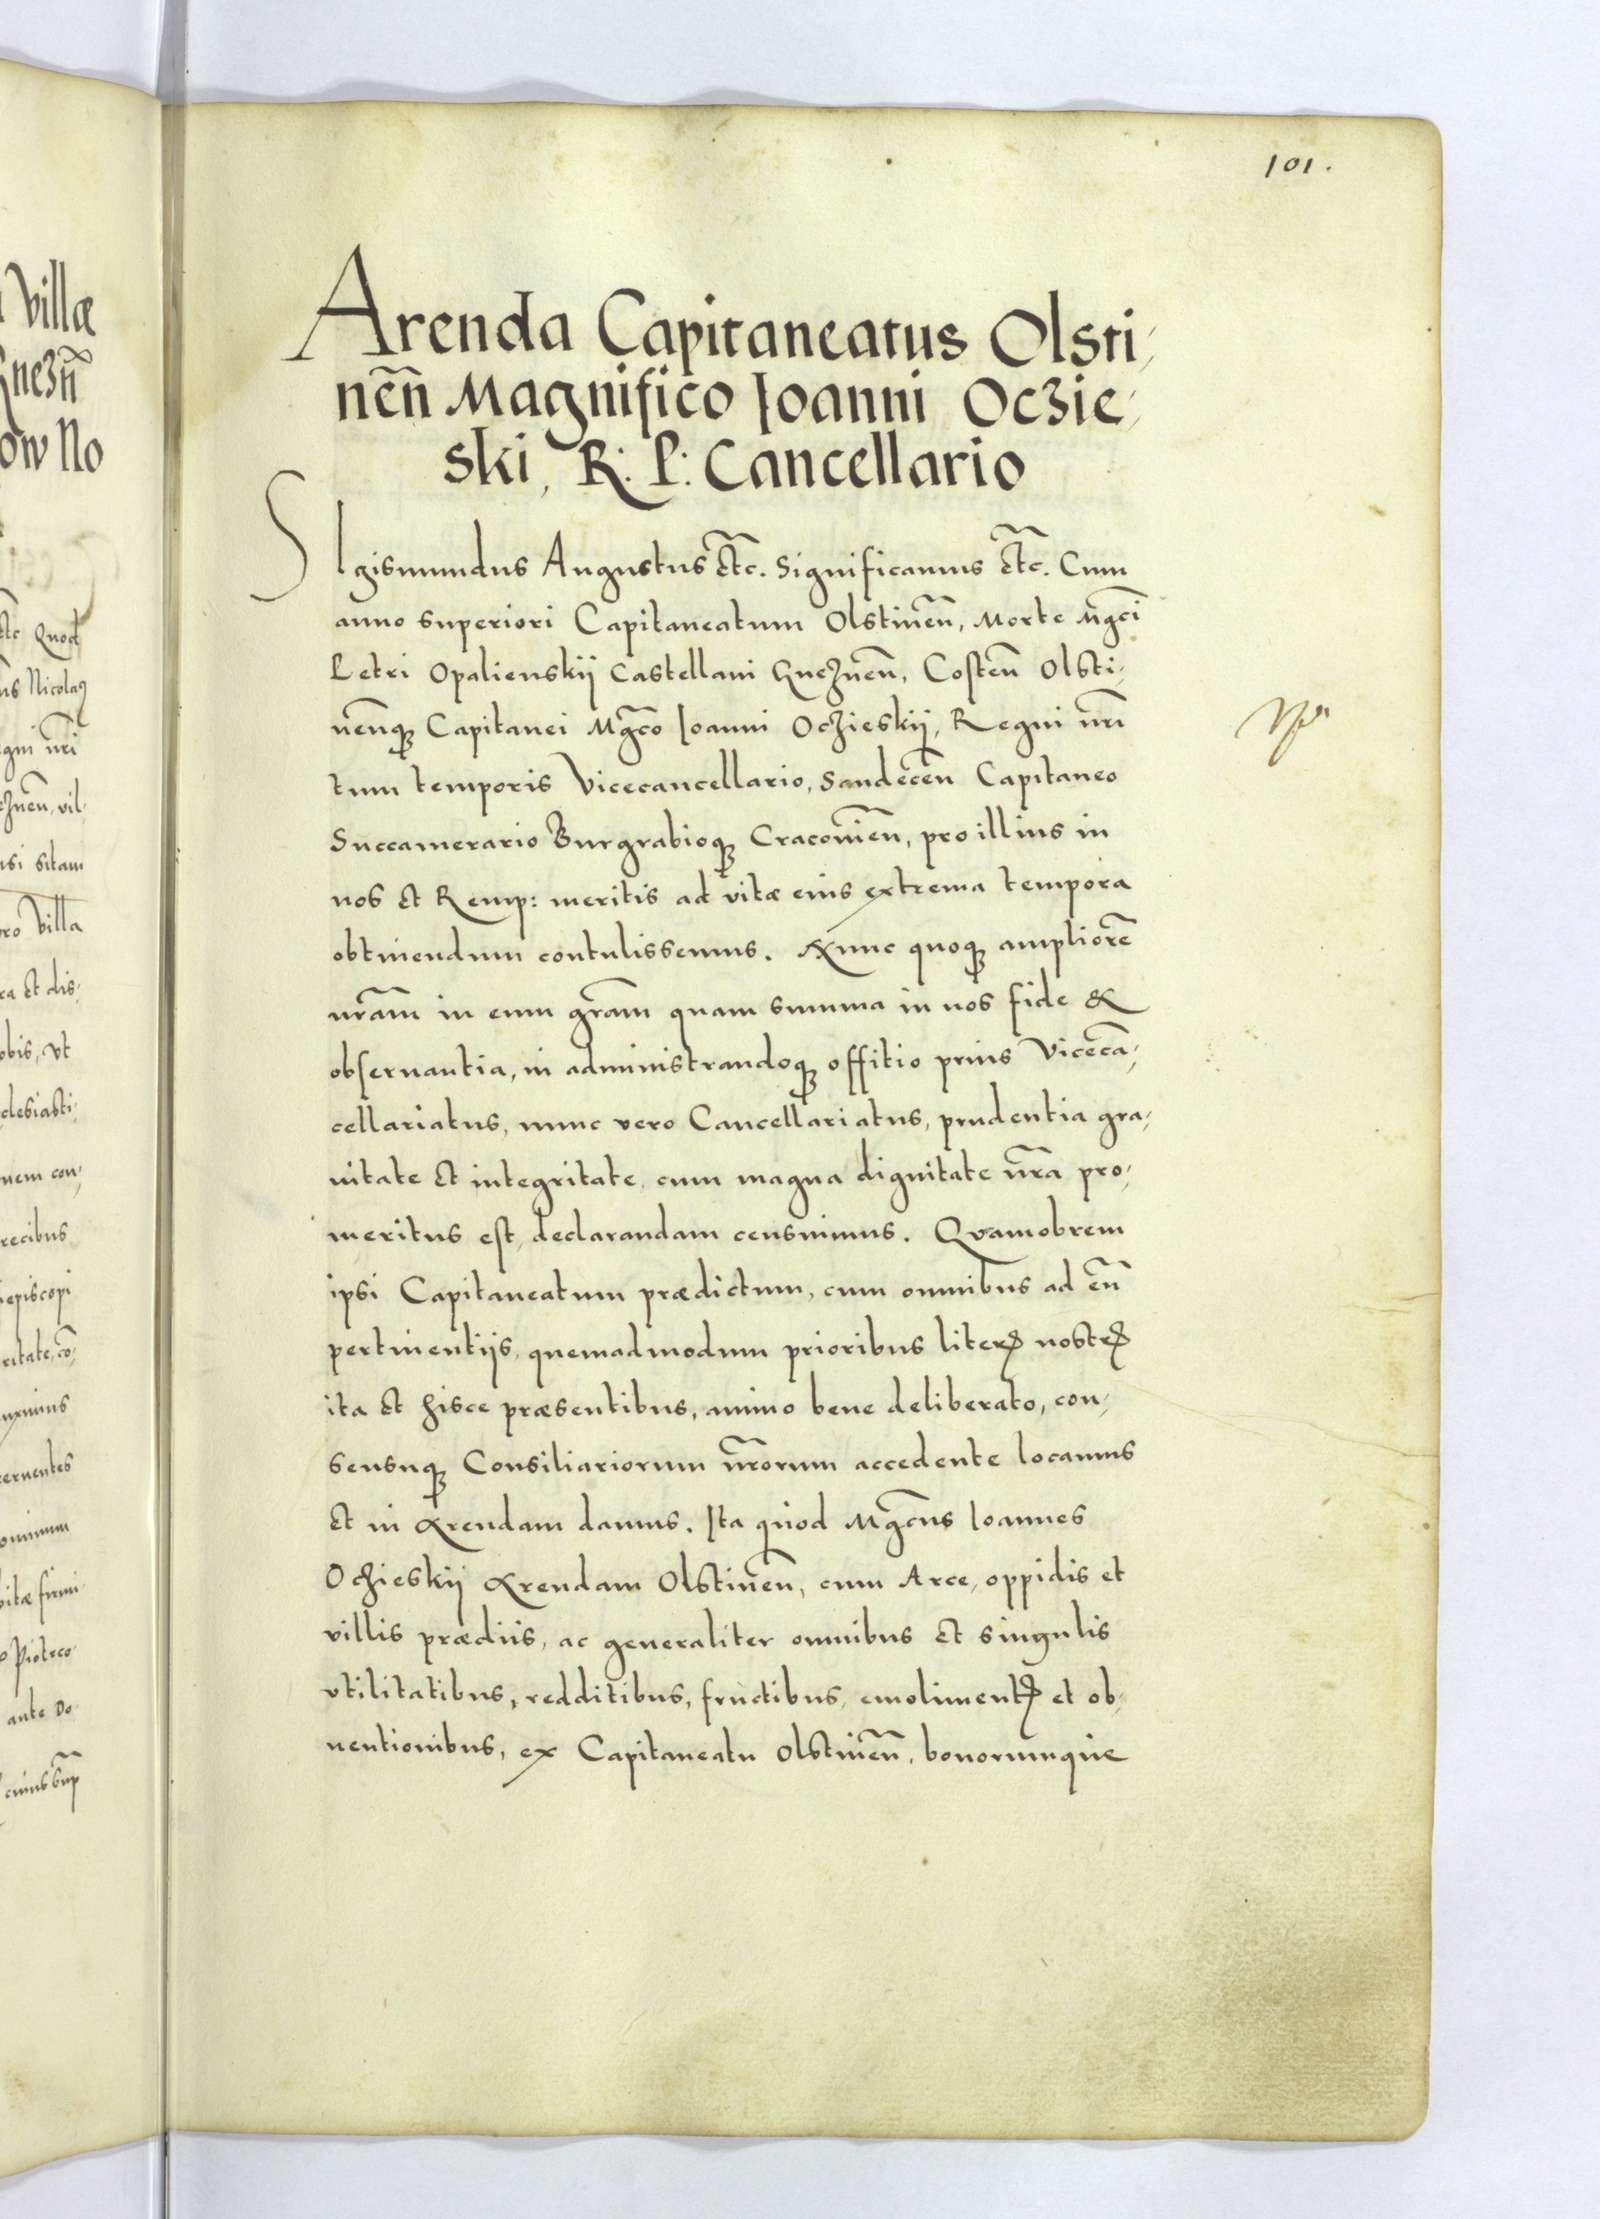 101.
Arenda Capitaneatus Olsti,
nen̄ Magnifico Ioanni Oczie,
ski, R: P: Cancellario
SIgismundus Augustus Etc̄. Significamus Etc̄. Cum
anno superiori Capitaneatum Olstinen̄, Morte Mgc̄i
Petri Opalienskij Castellani Gneznen̄, Costen̄ Olsti,
nen̄q̨ Capitanei Mgc̄o Ioanni Oczieskij, Regni nr̄i
tum temporis Vicecancellario, Sandecen̄ Capitaneo
Succamerario Burgrabioq̨ Cracovien̄, pro illius in
nos et Remp: meritis ad vitæ eius extrema tempora
obtinendum contulissemus. Nunc quoq̨ ampliorē
nr̄am in eum gr̄am quam summa in nos fide &
obseruantia, in administrandoq̨ offitio prius Vicecā,
cellariatus, nunc vero Cancellariatus, prudentia gra,
uitate et integritate, cum magna dignitate nr̄a pro,
meritus est, declarandam censuimus. Quamobrem
ipsi Capitaneatum prædictum, cum omnibus ad eū
pertinentijs, quemadmodum prioribus literꝭ nostrꝭ
ita et hisce præsentibus, animo bene deliberato, con,
sensuq̨ Consiliariorum nr̄orum accedente locamus
et in Arendam damus. Ita quod Mgc̄us Ioannes
Oczieskij Arendam Olstinen̄, cum Arce, oppidis et
villis prædiis, ac generaliter omnibus et singulis
vtilitatibus, redditibus, fructibus, emolimentꝭ et ob,
uentionibus, ex Capitaneatu Olstinen̄, bonorumque
Villæ
Gnezn̄
ow No
Etc Quod
Nicolaꝰ
gni nr̄i
znen̄, vil,
si sitam
pro Villa
ra et dis,
obis, vt
clesiasti,
nem con,
recibus
iepiscopi
ritate, cō,
ominum
vitæ firmi
Piotrco
ante Do